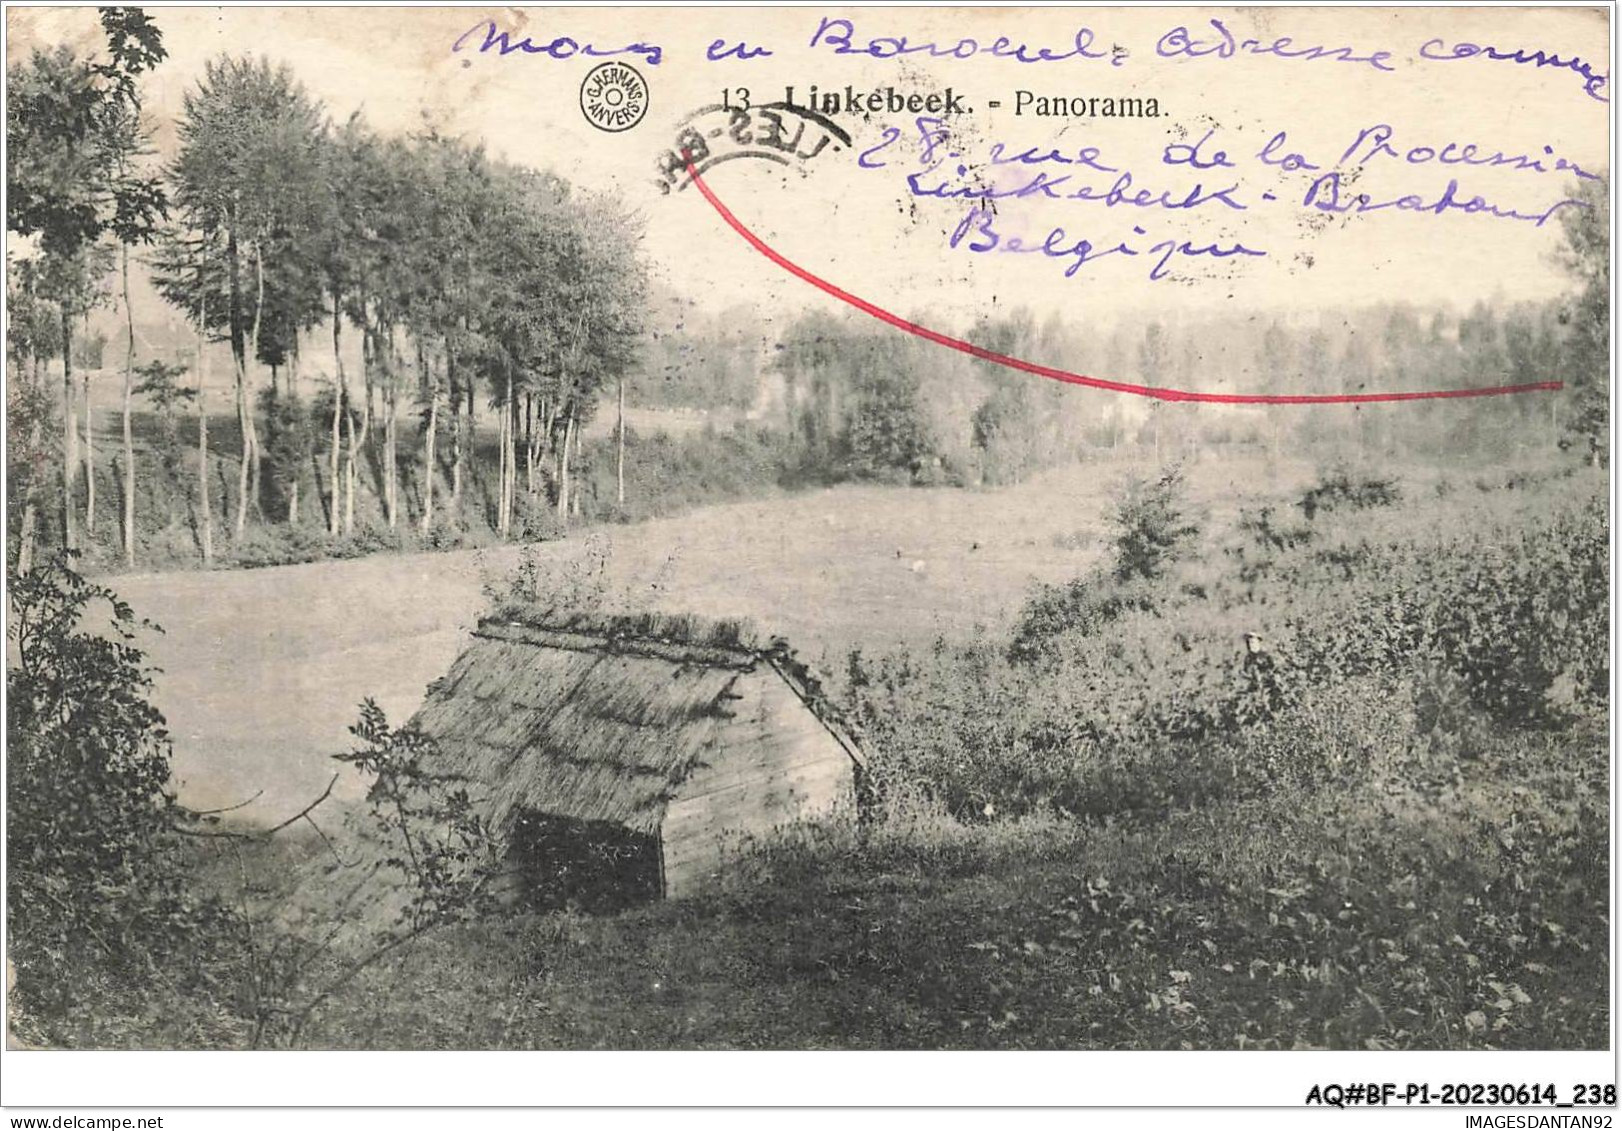 Mons en Baroeul. Adresse comme
G. HERMANS ANVERS
13 Linkebeek. - Panorama.
28, rue de la Procession
Linkebeek - Brabant
Belgique
AQ#BF-P1-20230614_238
delcampe.net
IMAGESDANTAN92